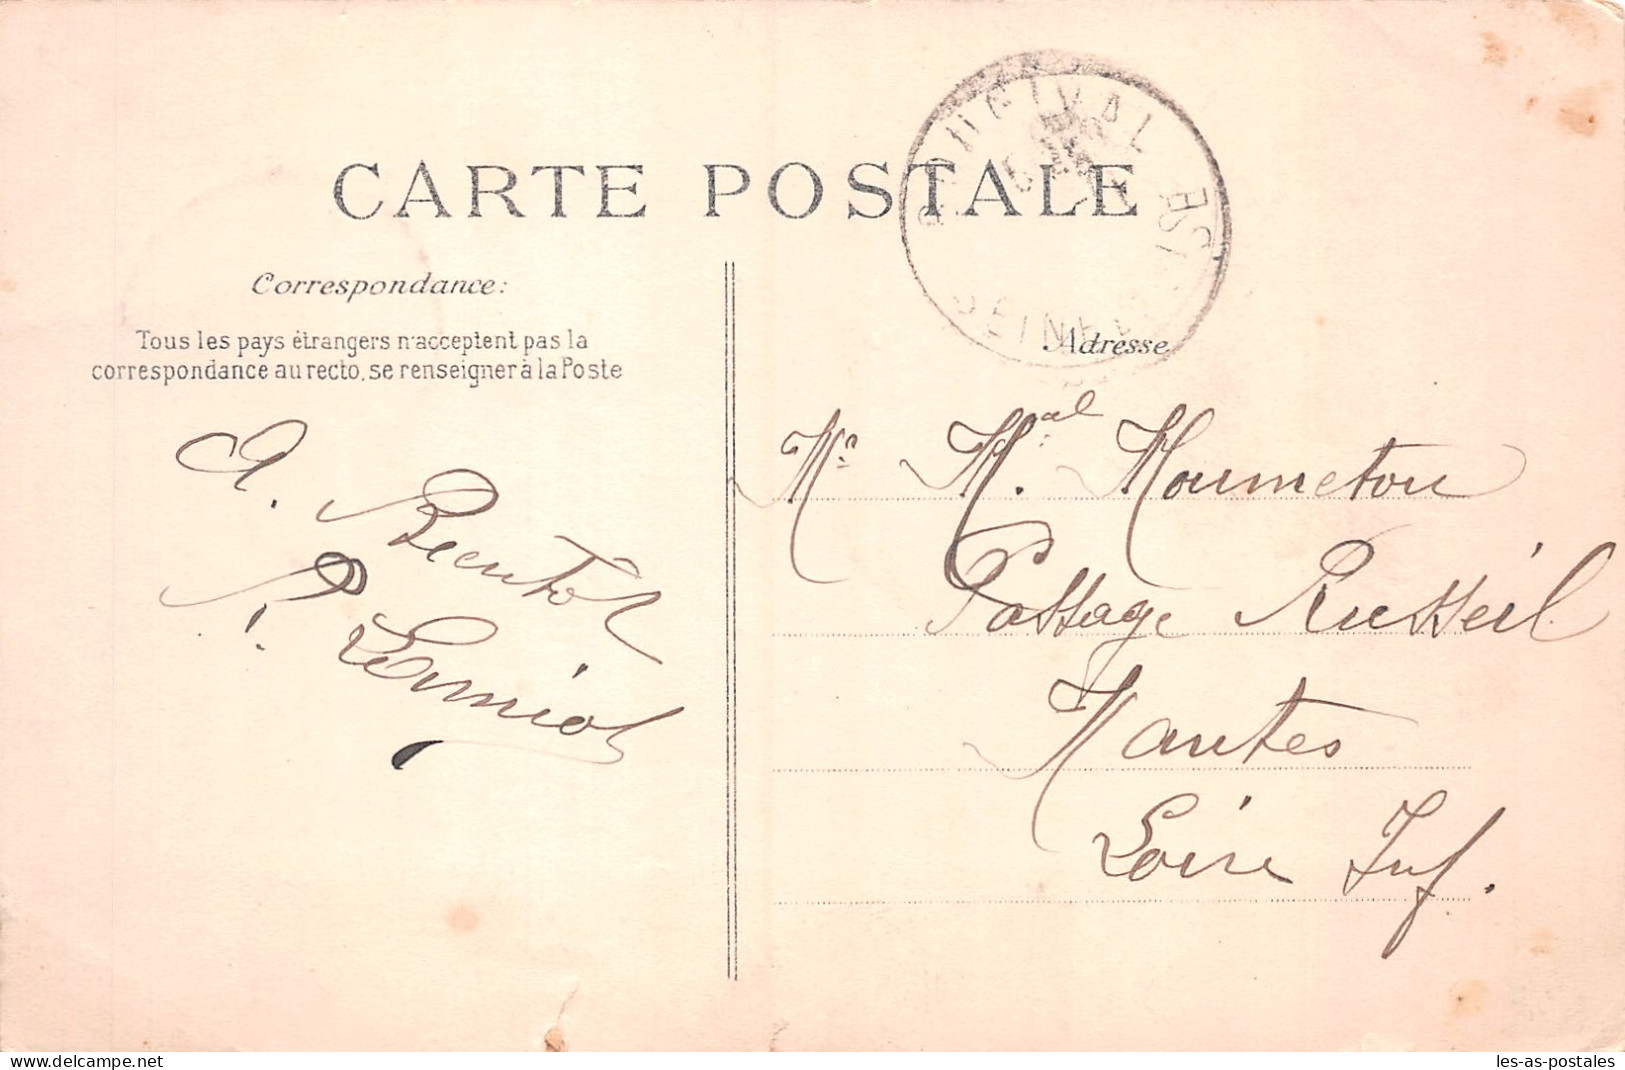 CARTE POSTALE
Correspondance:
Tous les pays étrangers n'acceptent pas la
correspondance au recto, se renseigner à la Poste
Adresse
A.
P.
Mr M.al Moumetou
Passage Russeil
Nantes
Loire Inf.
BOUGIVAL
SEINE ET OISE
delcampe.net
les-as-postales